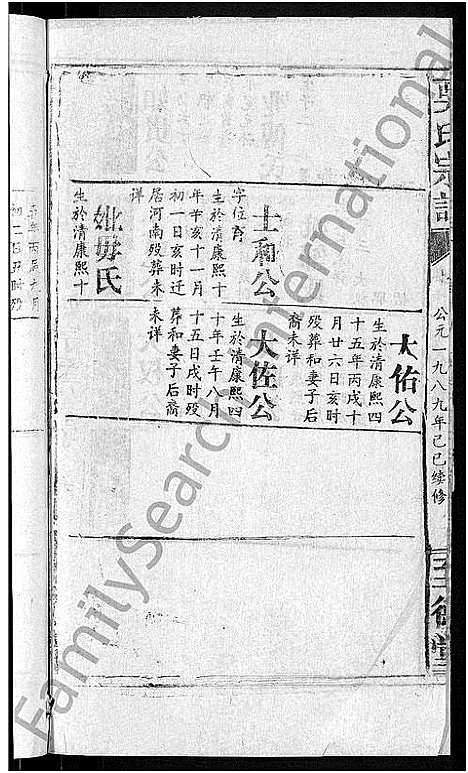 吴氏宗譜
公元一九八九年己巳续修
至德堂
士和公
字位育
生於清康熙十
年辛亥十一月
初一日亥时迁
居河南殁葬未
详
妣毋氏
生於清康熙十
大佑公
生於清康熙四
十五年丙戌十
月廿六日亥时
殁葬和妻子后
裔未详
大佐公
生於清康熙四
十年壬午八月
十五日戌时殁
葬和妻子后裔
未详
FamilySearch International